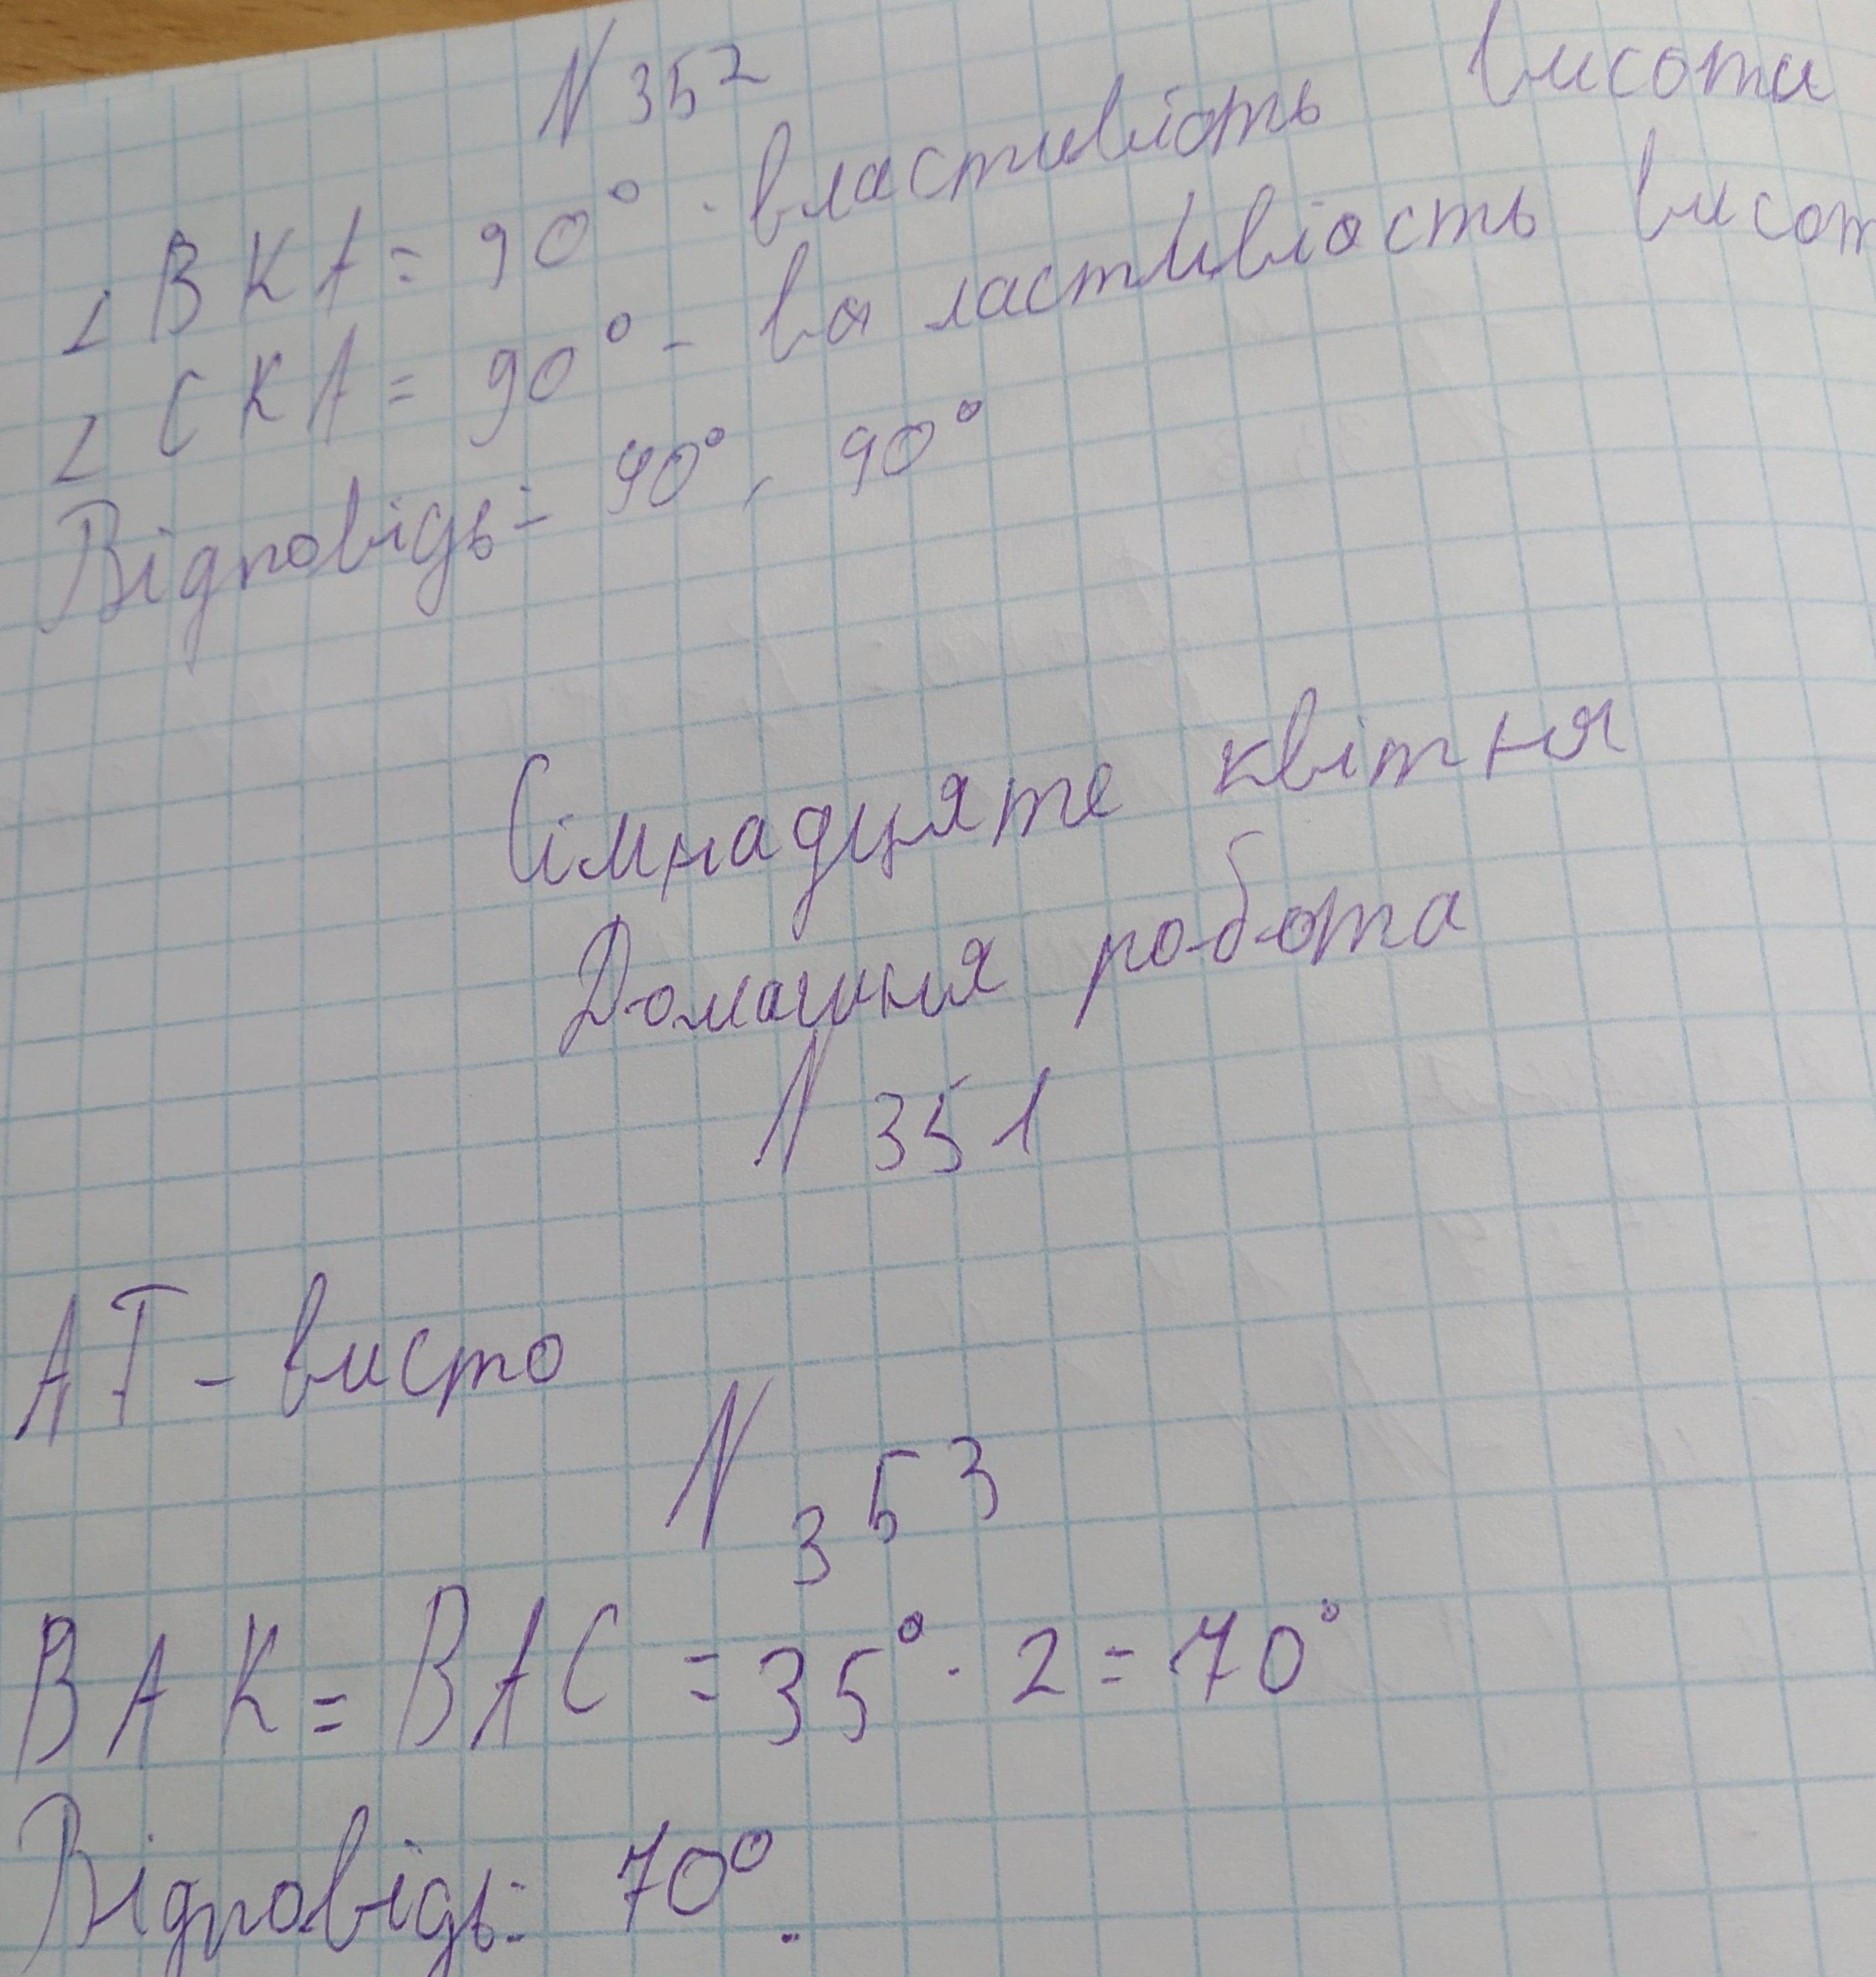 N 352
∠ BKA = 90° - властивість висоти
∠ CKA = 90° - ва ластивіость висот
Відповідь: 90°, 90°
Сімнадцяте квітня
Домашня робота
N 351
AT - висто
N 353
BAK = BAC = 35° · 2 = 70°
Відповідь: 70°.